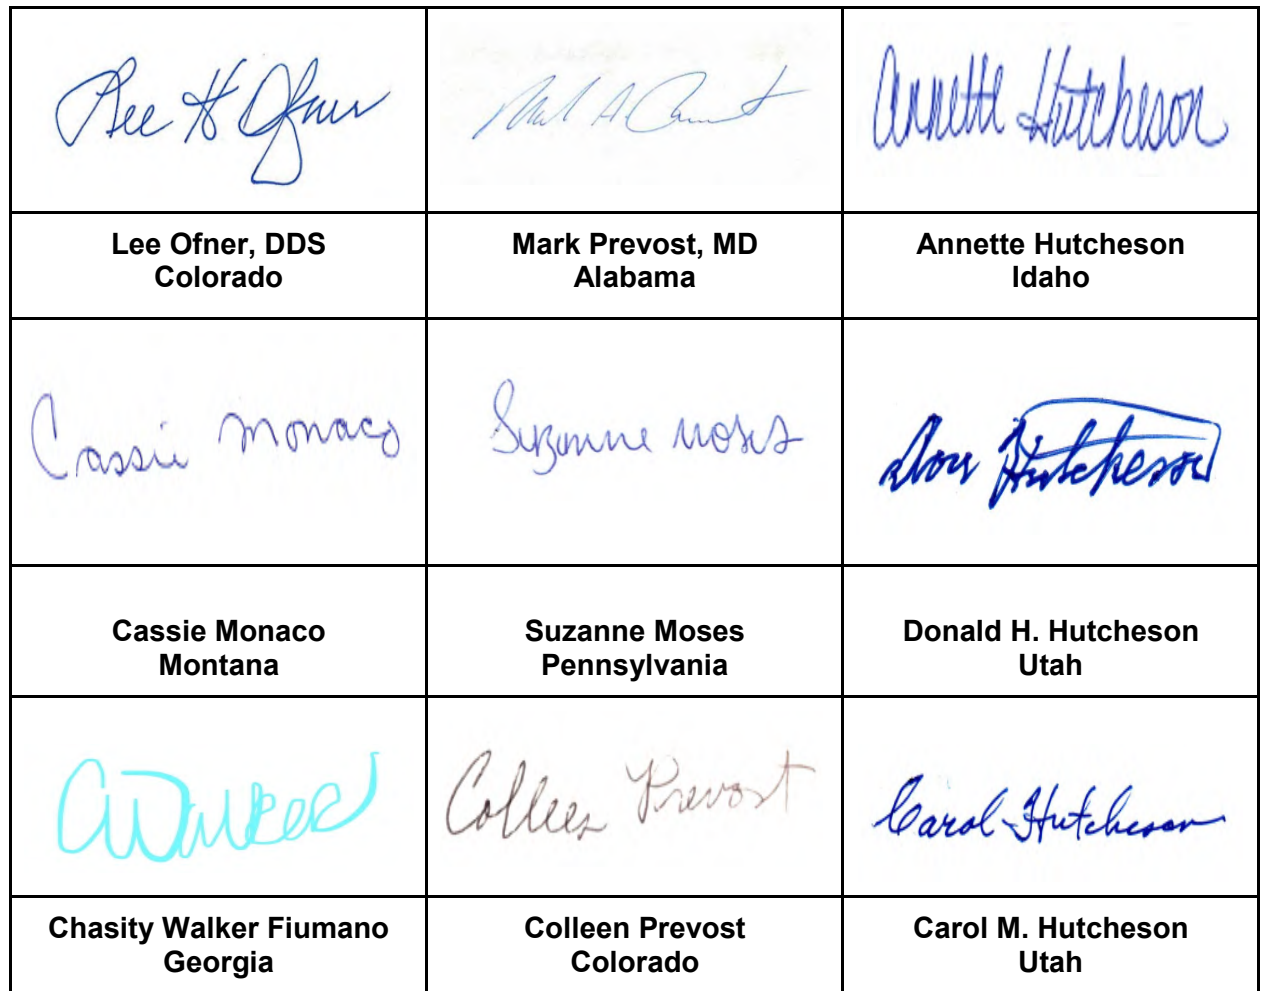 Lee H Ofner
Mark A Prevost
Annette Hutcheson
Lee Ofner, DDS
Colorado
Mark Prevost, MD
Alabama
Annette Hutcheson
Idaho
Cassie Monaco
Suzanne Moses
Don Hutcheson
Cassie Monaco
Montana
Suzanne Moses
Pennsylvania
Donald H. Hutcheson
Utah
CWalker
Colleen Prevost
Carol Hutcheson
Chasity Walker Fiumano
Georgia
Colleen Prevost
Colorado
Carol M. Hutcheson
Utah